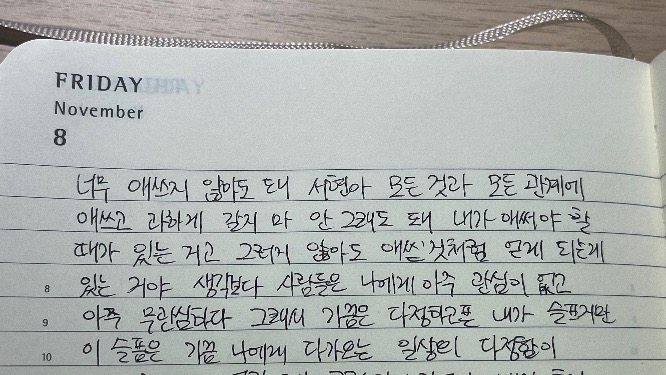 FRIDAY
November
8
너무 애쓰지 않아도 돼 서현아 모든것과 모든 관계에
애쓰고 과하게 갈지 마 안 그래도 돼 내가 애써야 할
때가 있는 거고 그렇게 않아도 애쓸 것처럼 얻게 되는게
8 있는 거야 생각보다 사람들은 나에게 아주 관심이 없고
9 아주 무관심하다 그래서 가끔은 다정하고픈 내가 슬프지만
10 이 슬픔은 가끔 나에게 다가오는 일상의 다정함이